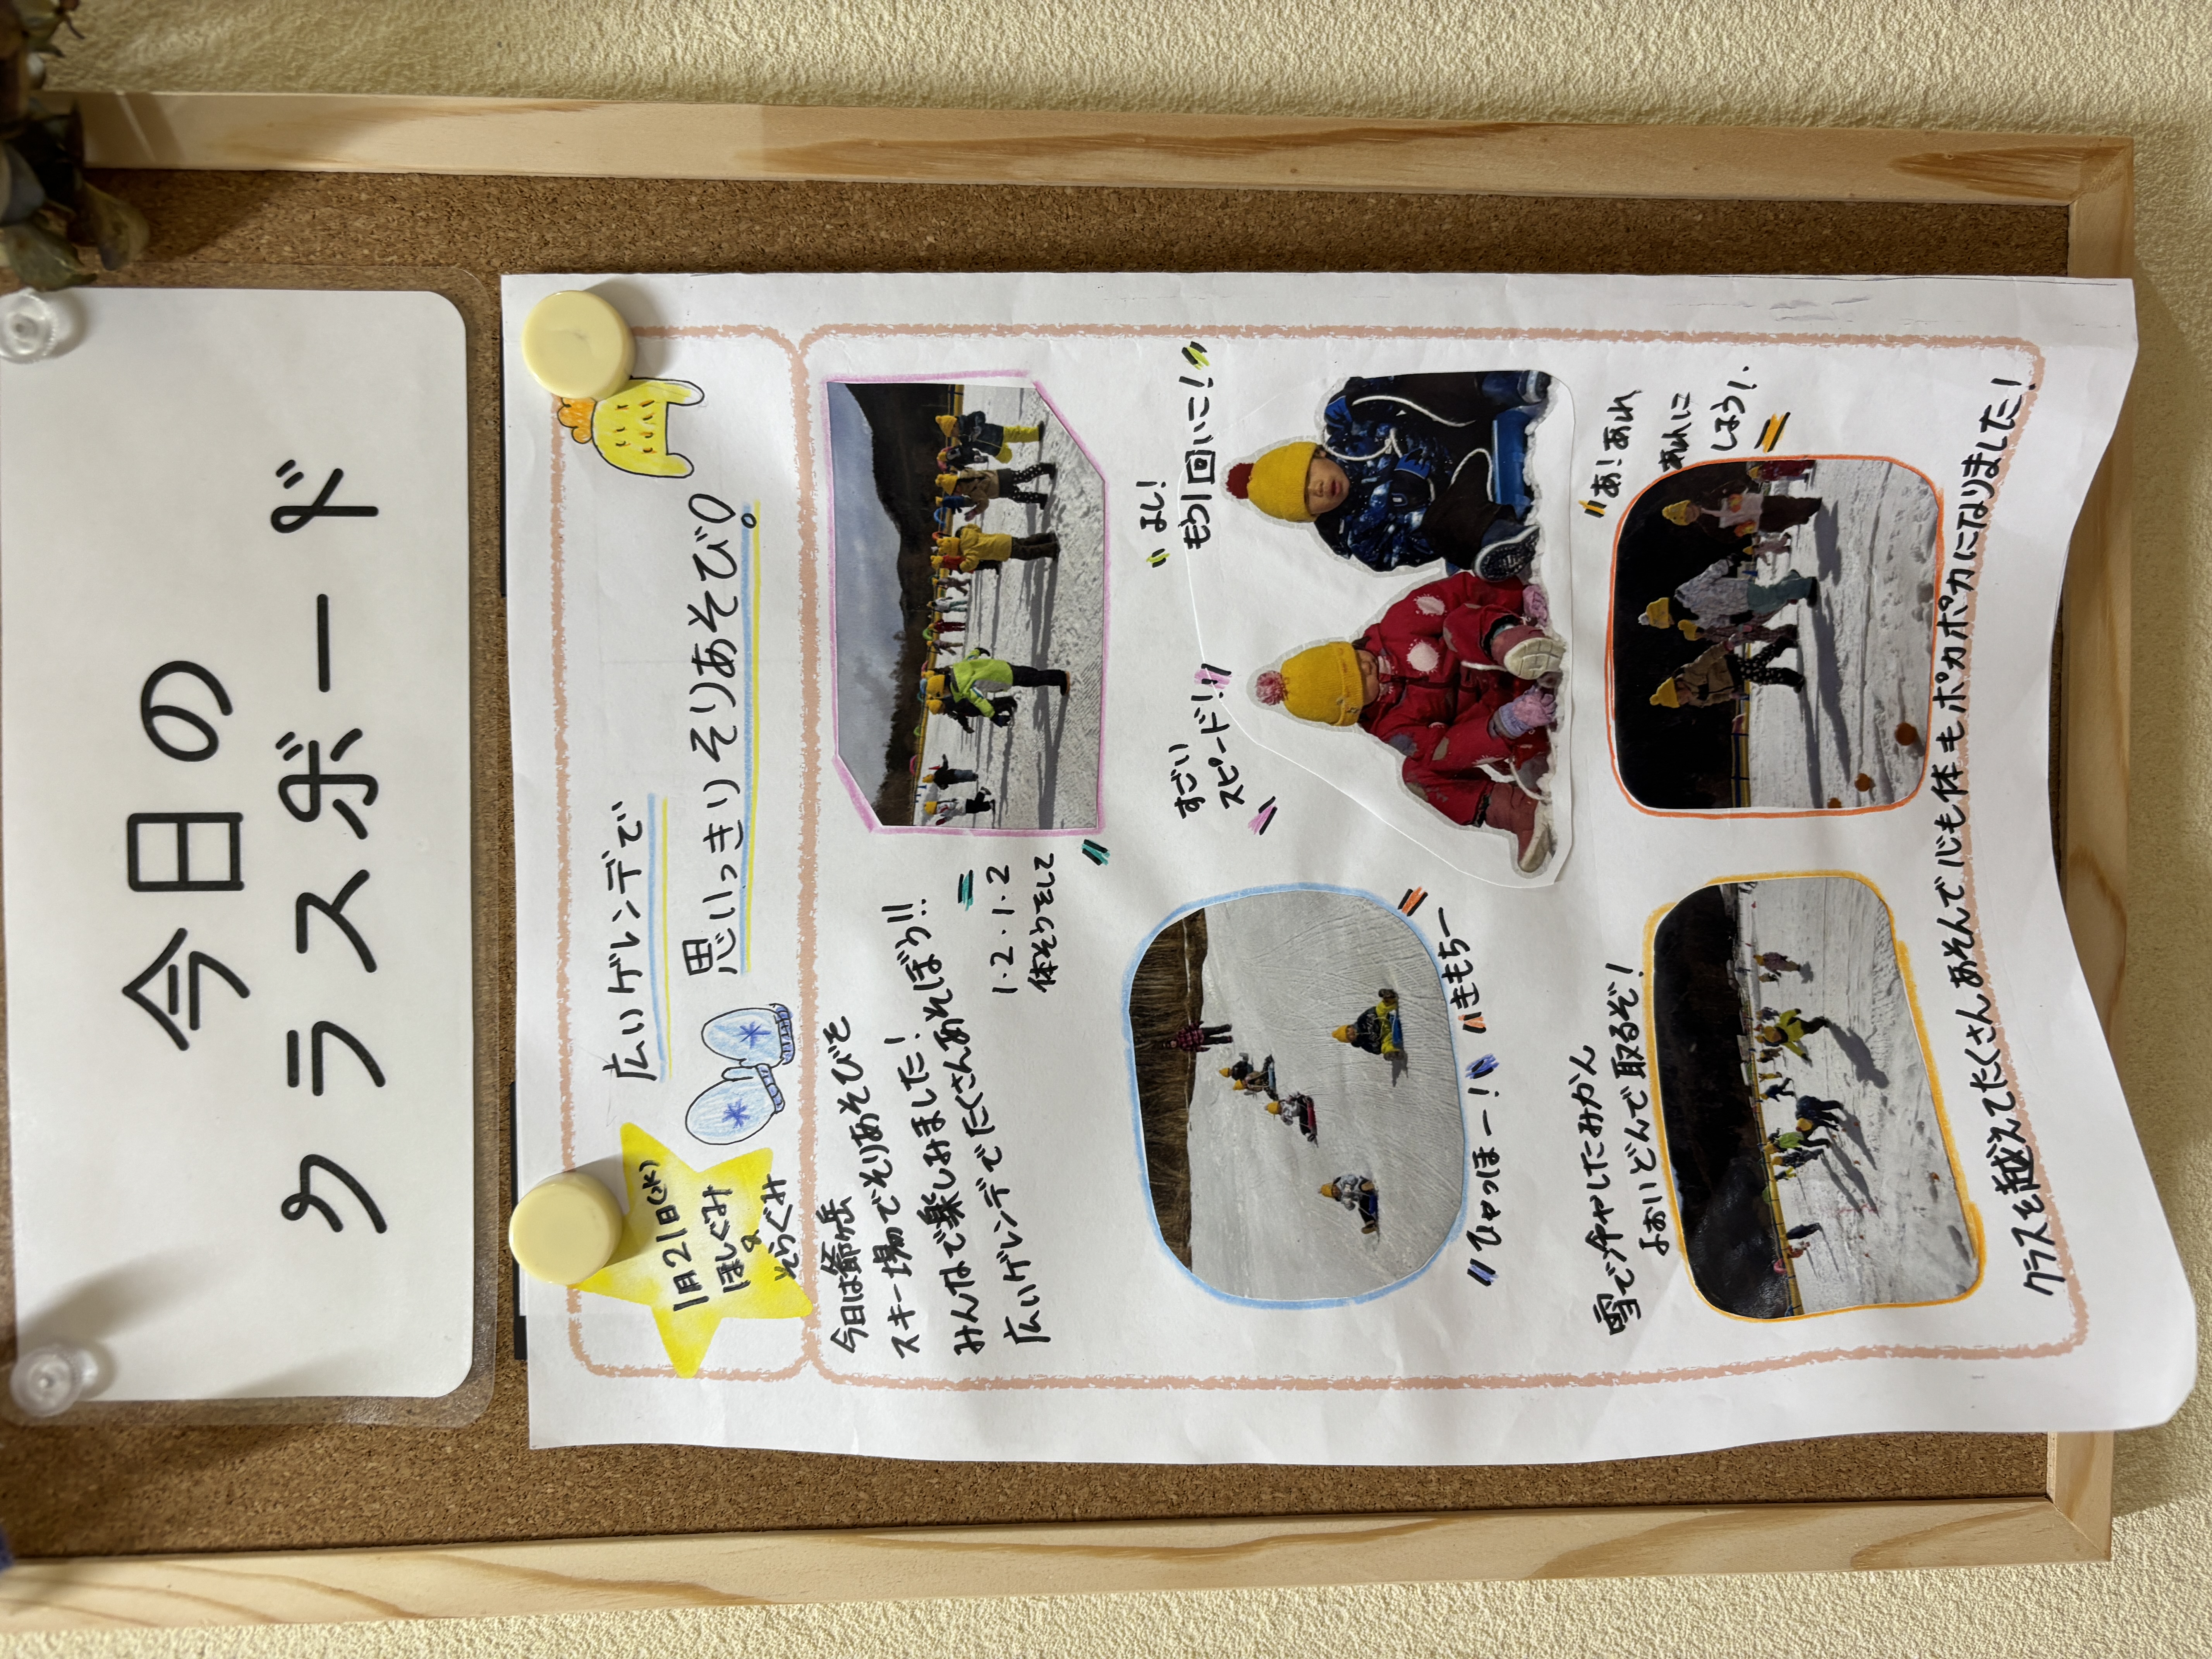 今日の
クラスボード
1月21日(水)
ほしぐみ
&
そらぐみ
広いゲレンデで
思いっきりそりあそび♡。
今日は爺ヶ岳
スキー場でそりあそびを
みんなで楽しみました!
広いゲレンデでたくさんあそぼう!!
1・2・1・2
体そうをして
すごい
スピード!!
よし!
もう1回いこ!
ひゃっほー!
きもちー
雪で冷やしたみかん
よおいどんで取るぞ!
あ!あれ
あれに
しよう!
クラスを越えてたくさんあそんで心も体もポカポカになりました!